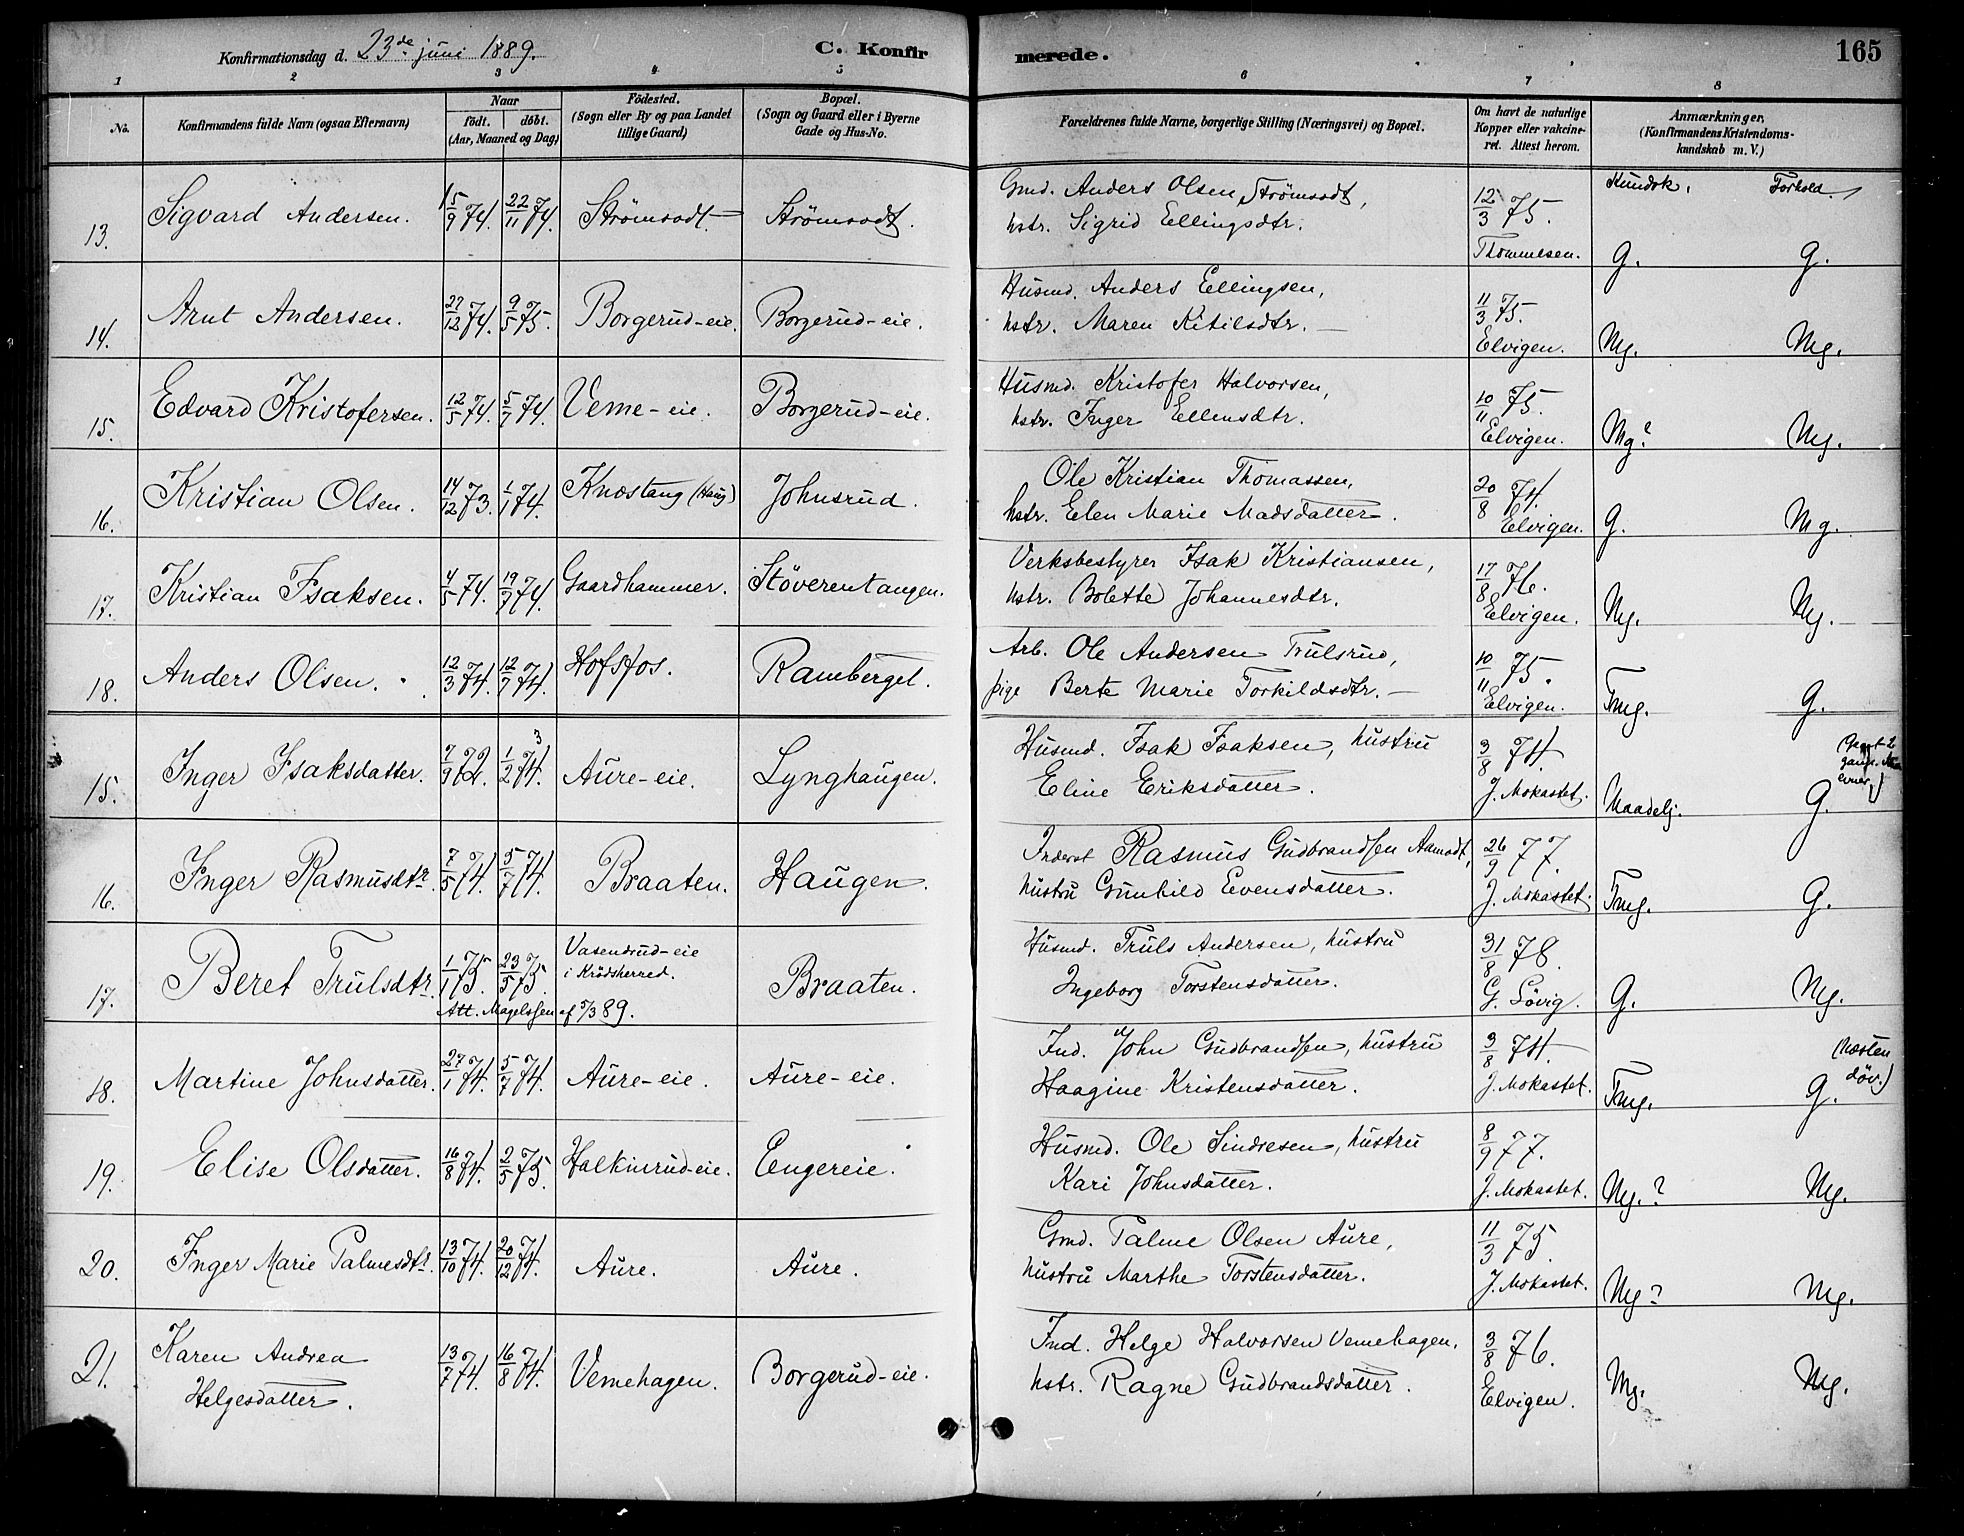 Konfirmationsdag d. 23de juni 1889. C. Konfirmerede. 165
1 2 3 4 5 6 7 8
No. Konfirmandens fulde Navn (ogsaa Efternavn) Naar födt. döbt. (Aar, Maaned og Dag) Födested. (Sogn eller By og paa Landet tillige Gaard) Bopæl. (Sogn og Gaard eller i Byerne Gade og Hus-No. Forældrenes fulde Navne, borgerlige Stilling (Næringsvei) og Bopæl. Om havt de naturlige Kopper eller vakcineret. Attest herom. Anmærkninger, (Konfirmandens Kristendomskundskab m. V.)
Kundsk. Forhold.
13. Sigvard Andersen. 15/9 74. 22/11 74. Strømsodt Strømsodt. Gmd. Anders Olsen Strømsodt,
hstr. Sigrid Ellingsdtr. 12/3 75. Thommesen. G. G.
14. Arnt Andersen. 27/12 74. 9/5 75. Borgerud-eie. Borgerud-eie. Husmd. Anders Ellingsen,
hstr. Maren Kitilsdtr. 11/3 75. Elvigen. Mg. Mg.
15. Edvard Kristofersen. 12/5 74. 5/7 74. Veme-eie. Borgerud-eie. Husmd. Kristofer Halvorsen,
hstr. Inger Ellensdtr. 10/11 75. Elvigen. Mg? Mg.
16. Kristian Olsen. 14/12 73. 1/1 74. Knæstang (Haug) Johnsrud. Ole Kristian Thomassen,
hstr. Elen Marie Madsdatter. 20/8 74. Elvigen. G. Mg.
17. Kristian Isaksen. 4/5 74. 19/7 74. Gaardhammer. Stöverentangen. Verksbestyrer Isak Kristiansen,
hstr. Bolette Johannesdtr. 17/8 76. Elvigen. Mg. Mg.
18. Anders Olsen. 12/3 74. 12/7 74. Hofsfos. Ramberget. Arb. Ole Andersen Trulsrud,
pige Berte Marie Torkildsdtr. 10/11 75. Elvigen. Tmg. G.
15. Inger Isaksdatter. 7/9 72. 1/2 74. 3 Aure-eie. Lynghaugen. Husmd. Isak Isaksen, hustru
Eline Eriksdatter. 3/8 74 J. Mokastet. Maadelj. G.
16. Inger Rasmusdtr. 7/5 74. 5/7 74. Braaten. Haugen. Inderst Rasmus Gudbrandsen Aamodt,
hustru Gunhild Evensdatter. 26/9 77. J. Mokastet. Tmg. G.
17. Beret Trulsdtr. 1/1 75. 23/5 75. Vasendrud-eie i Krödsherred. Braaten. Husmd. Truls Andersen, hustru
Ingeborg Torstensdatter. 31/8 78. G. Lövig. G. Mg.
Att. Magelssen af 5/3 89.
18. Martine Johnsdatter. 27/1 74. 5/7 74. Aure-eie. Aure-eie. Ind. John Gudbrandsen, hustru
Haagine Kristensdatter. 3/8 74 J. Mokastet. Tmg. G. (Næsten döv.)
19. Elise Olsdatter. 16/8 74. 2/5 75. Halkinrud-eie. Eengereie. Husmd. Ole Sindresen, hustru
Kari Johnsdatter. 8/9 77. J. Mokastet. Mg.? Mg.
20. Inger Marie Palmesdtr. 13/10 74. 20/12 74. Aure. Aure. Gmd. Palme Olsen Aure,
hustru Marthe Torstensdatter. 11/3 75. J. Mokastet. Mg? Mg.
21. Karen Andrea
Helgesdatter. 13/7 74. 16/8 74. Vemehagen. Borgerud-eie. Ind. Helge Halvorsen Vemehagen,
hstr. Ragne Gudbrandsdatter. 3/8 76. Elvigen. Mg. Mg.